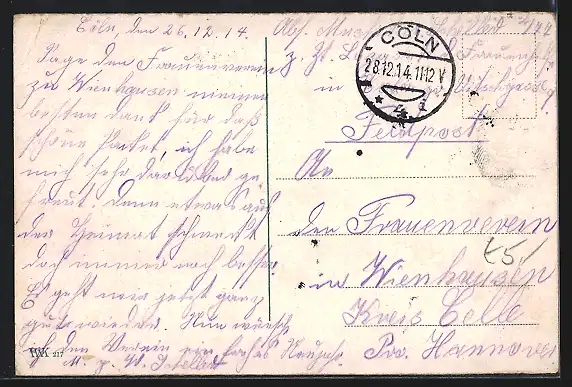 Cöln, den 26.12.14.
Sage den Frauenverein
zu Wienhausen meinen
besten dank für daß
schöne Paket, ich habe
mich sehr darüber ge
freut. Denn etwas auß
der Heimat schmeckt
doch immer noch besser.
Es geht mir jetzt ganz
gut wieder. Nun wünsch
ich den Verein ein frohes Neujahr.
Abs.
z. Zt.
in
CÖLN
28.12.14.11-12V
Feldpost
An
den Frauenverein
in Wienhausen
Kreis Celle
Prov. Hannover
£5
217